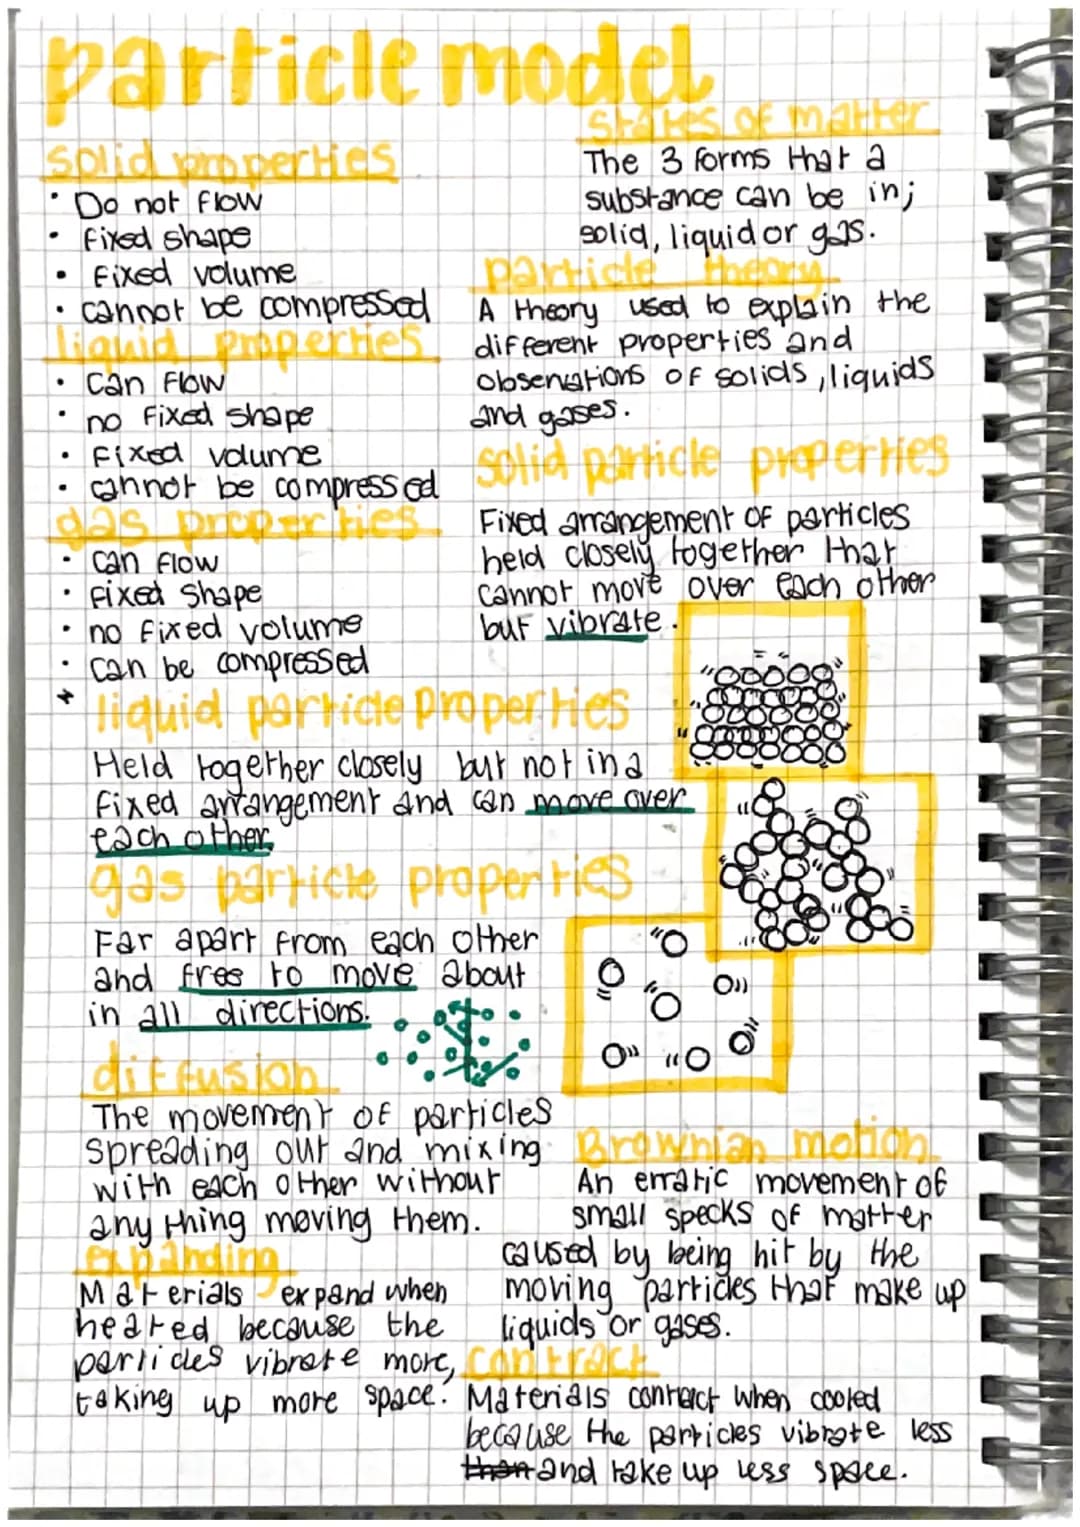 particle model
solid properties
• Do not flow
• fixed shape
• fixed volume
• cannot be compressed
liquid properties
• can flow
• no fixed shape
• fixed volume
• cannot be compressed
gas properties
• can flow
• fixed shape
• no fixed volume
• can be compressed
states of matter
The 3 forms that a
substance can be in;
solid, liquid or gas.
particle theory
A theory used to explain the
different properties and
observations of solids, liquids
and gases.
solid particle properties
Fixed arrangement of particles
held closely together that
cannot move over each other
but vibrate.
* liquid particle properties
Held together closely but not in a
fixed arrangement and can move over
each other.
gas particle properties
Far apart from each other
and free to move about
in all directions.
diffusion
The movement of particles
spreading out and mixing
with each other without
anything moving them.
Brownian motion
An erratic movement of
small specks of matter
caused by being hit by the
moving particles that make up
liquids or gases.
expanding
Materials expand when
heated because the
particles vibrate more,
taking up more space.
contract
Materials contract when cooled
because the particles vibrate less
than and take up less space.